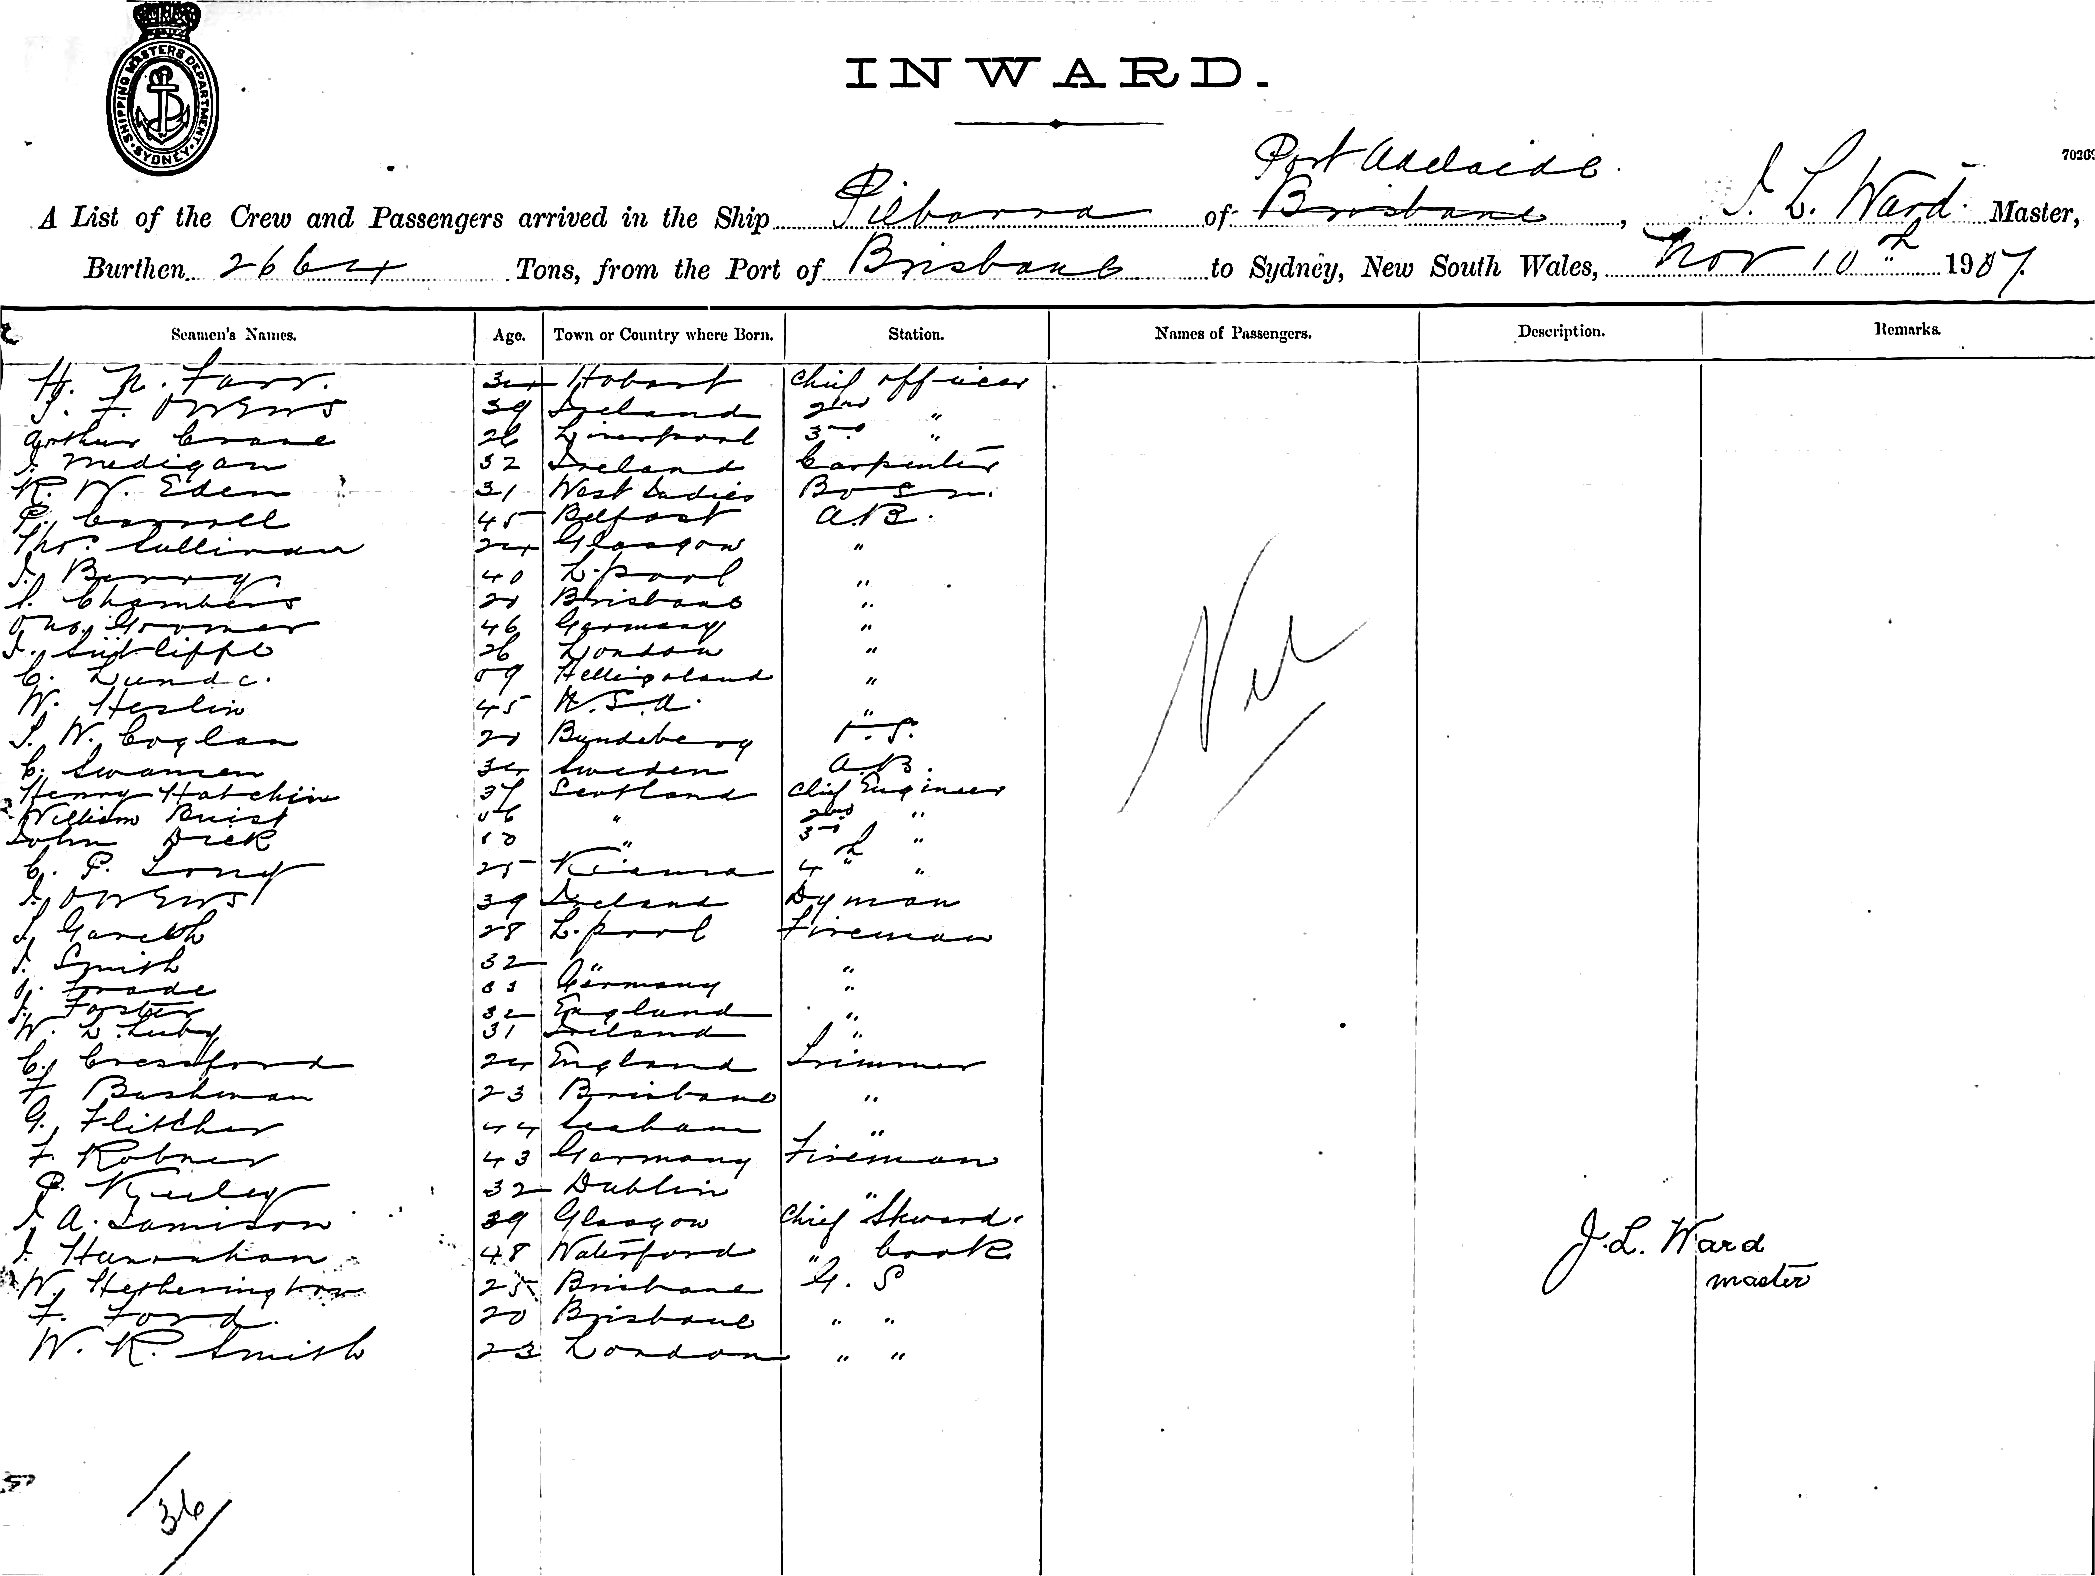 SHIPPING MASTERS DEPARTMENT. SYDNEY.
INWARD.
70263
Port Adelaide.
A List of the Crew and Passengers arrived in the Ship Pilbarra of Brisbane, J. L. Ward. Master,
Burthen 2664 Tons, from the Port of Brisbane to Sydney, New South Wales, Nov 10th 1907.
Seamen's Names. Age. Town or Country where Born. Station. Names of Passengers. Description. Remarks.
H. N. Farr. 34 Hobart Chief officer
J. F. Owens 39 Ireland 2nd "
Arthur Crane 26 Liverpool 3rd "
J. Medigan 32 Ireland Carpenter
R. W. Eden 31 West Indies Bosn.
P. Carroll 45 Belfast A.B.
Thos. Sullivan 24 Glasgow "
J. Berry 40 L.pool "
S. Chambers Brisbane "
46 Germany "
J. Sutcliffe 26 London "
C. 59 "
W. Heslin 45 "
J. W. Coglan Bundeberg
C. Swansen 34 Sweden A.B.
Henry Hutchin 37 Scotland Chief Engineer
William Buist " 2nd "
John Dick " 3rd "
C. P. Long 25 Kiama 4th "
J. Owens 39 Ireland Dyman
J. 28 L.pool Fireman
J. Smith 32 " "
33 Germany "
J. Forster 32 England "
W. L. Luby 31 Ireland "
C. Cressford 24 England Trimmer
F. Bushman 23 Brisbane "
G. Flitcher 44 Seaham "
F. Robner 43 Germany Fireman
P. Keeley 32 Dublin "
J. A. Jamison 39 Glasgow Chief Steward.
J. Hanrahan 48 Waterford " Cook
W. Hetherington 25 Brisbane G. S
F. Ford. 20 Brisbane " "
W. R. Smith 23 London " "
Nil
J. L. Ward
master
36